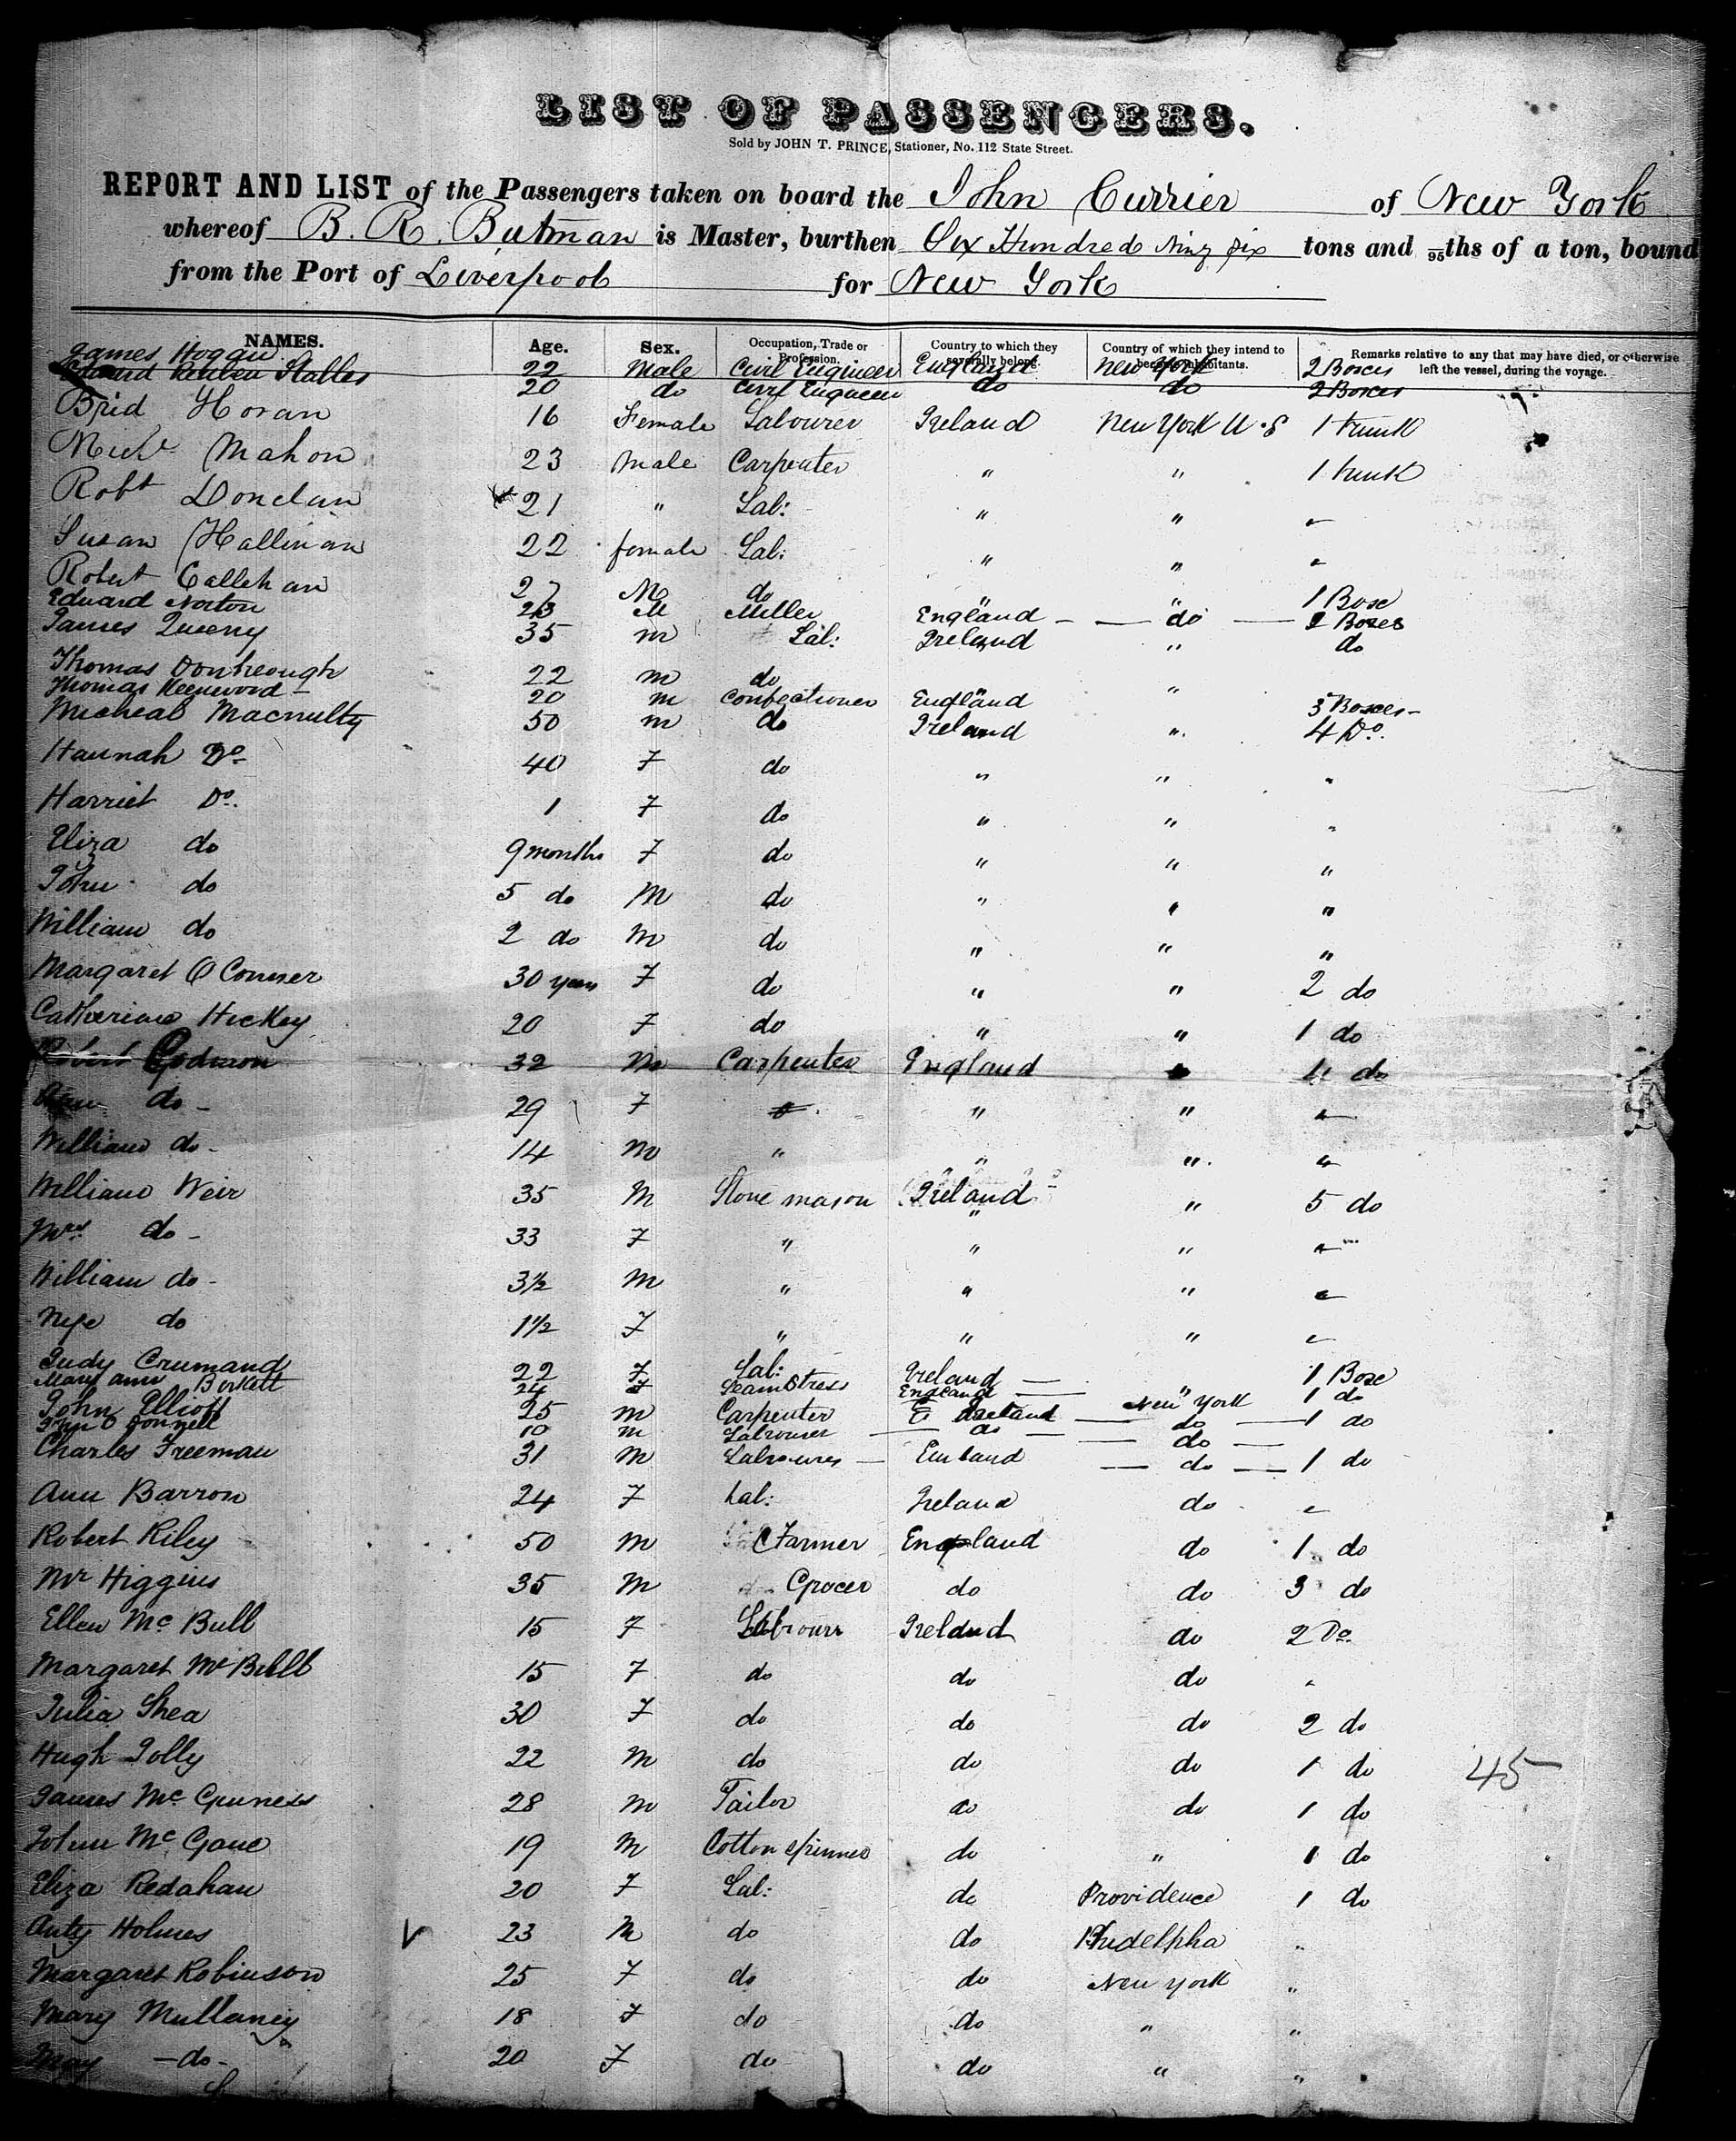 LIST OF PASSENGERS.
Sold by JOHN T. PRINCE, Stationer, No. 112 State Street.
REPORT AND LIST of the Passengers taken on board the John Currier of New York
whereof B. R. Butman is Master, burthen Six Hundred Ninty Six tons and 95ths of a ton, bound
from the Port of Liverpool for New York
NAMES. Age. Sex. Occupation, Trade or Profession. Country to which they severally belong. Country of which they intend to become inhabitants. Remarks relative to any that may have died, or otherwise left the vessel, during the voyage.
James Hogan 22 Male Civil Engineer England New York 2 Boxes
Reuben Stables 20 do Civil Engineer do do 2 Boxes
Brid Horan 16 Female Labourer Ireland New York U.S 1 trunk
Mahon 23 male Carpenter " " 1 trunk
Robt Donelan 21 " Lab: " " "
Susan Hallinan 22 female Lab: " " "
Robert Callehan 27 M do " " 1 Box
Edward Norton 23 M Miller England - — do — 2 Boxes
James Queeny 35 m Lab: Ireland " do
Thomas Donheough 22 m do " "
Thomas Keenwood - 20 m Confectioner England 3 Boxes -
Micheal Macnulty 50 m do Ireland " 4 Do.
Hannah Do 40 F do " " "
Harriet Do. 1 F do " " "
Eliza do 9 months F do " " "
John do 5 do M do " " "
William do 2 do M do " " "
Margaret O Conner 30 years F do " " 2 do
Catherine Hickey 20 F do " " 1 do
Robert 32 M Carpenter England " 4 do
do - 29 F " " "
William do - 14 M " " " "
William Weir 35 M Stone mason Ireland " 5 do
Mrs do - 33 F " " " "
William do - 3½ M " " " "
do 1½ F " " " "
Judy Crumand 22 F Lab: Ireland — " 1 Box
Mary Ann Birkett 24 F Seamstress England — New York 1 do
John Elliott 25 m Carpenter Ireland — do — 1 do
John O Donnell 10 m Labourer — do — — do —
Charles Freeman 31 M Labourer — England — do — 1 do
Ann Barron 24 F Lab: Ireland do "
Robert Riley 50 M Farmer England do 1 do
Mr Higgins 35 M Grocer do do 3 do
Ellen Mc Bull 15 F Labourr Ireland do 2 Do.
Margaret Mc Bull 15 F do do do "
Julia Shea 30 F do do do 2 do
Hugh Jolly 22 M do do do 1 do
45
James Mc Guness 28 M Tailor do do 1 do
John Mc Gane 19 M Cotton spinner do " 1 do
Eliza Redahan 20 F Lab: do Providence 1 do
Anty Holmes 23 M do do "
Margaret Robinson 25 F do do New York "
Mary Mullaney 18 F do do " "
May — do - 20 F do do " "